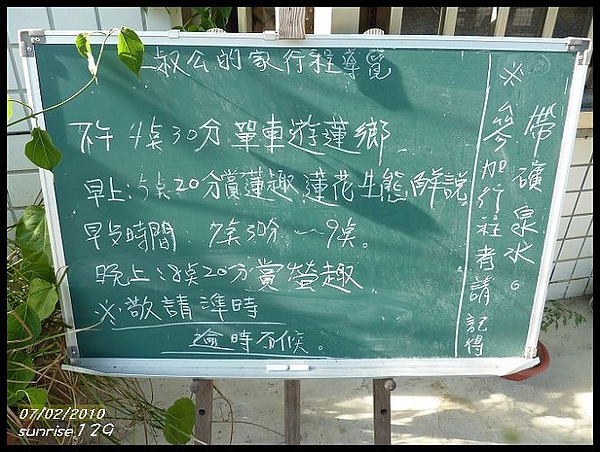 三叔公的家行程導覽
下午4點30分單車遊蓮鄉
早上:5點20分賞蓮趣,蓮花生態解說
早安時間:7點30分~9點。
晚上:8點20分賞螢趣
※敬請準時
逾時不候。
※參加行程者請記得
帶礦泉水。
07/02/2010
sunrise129